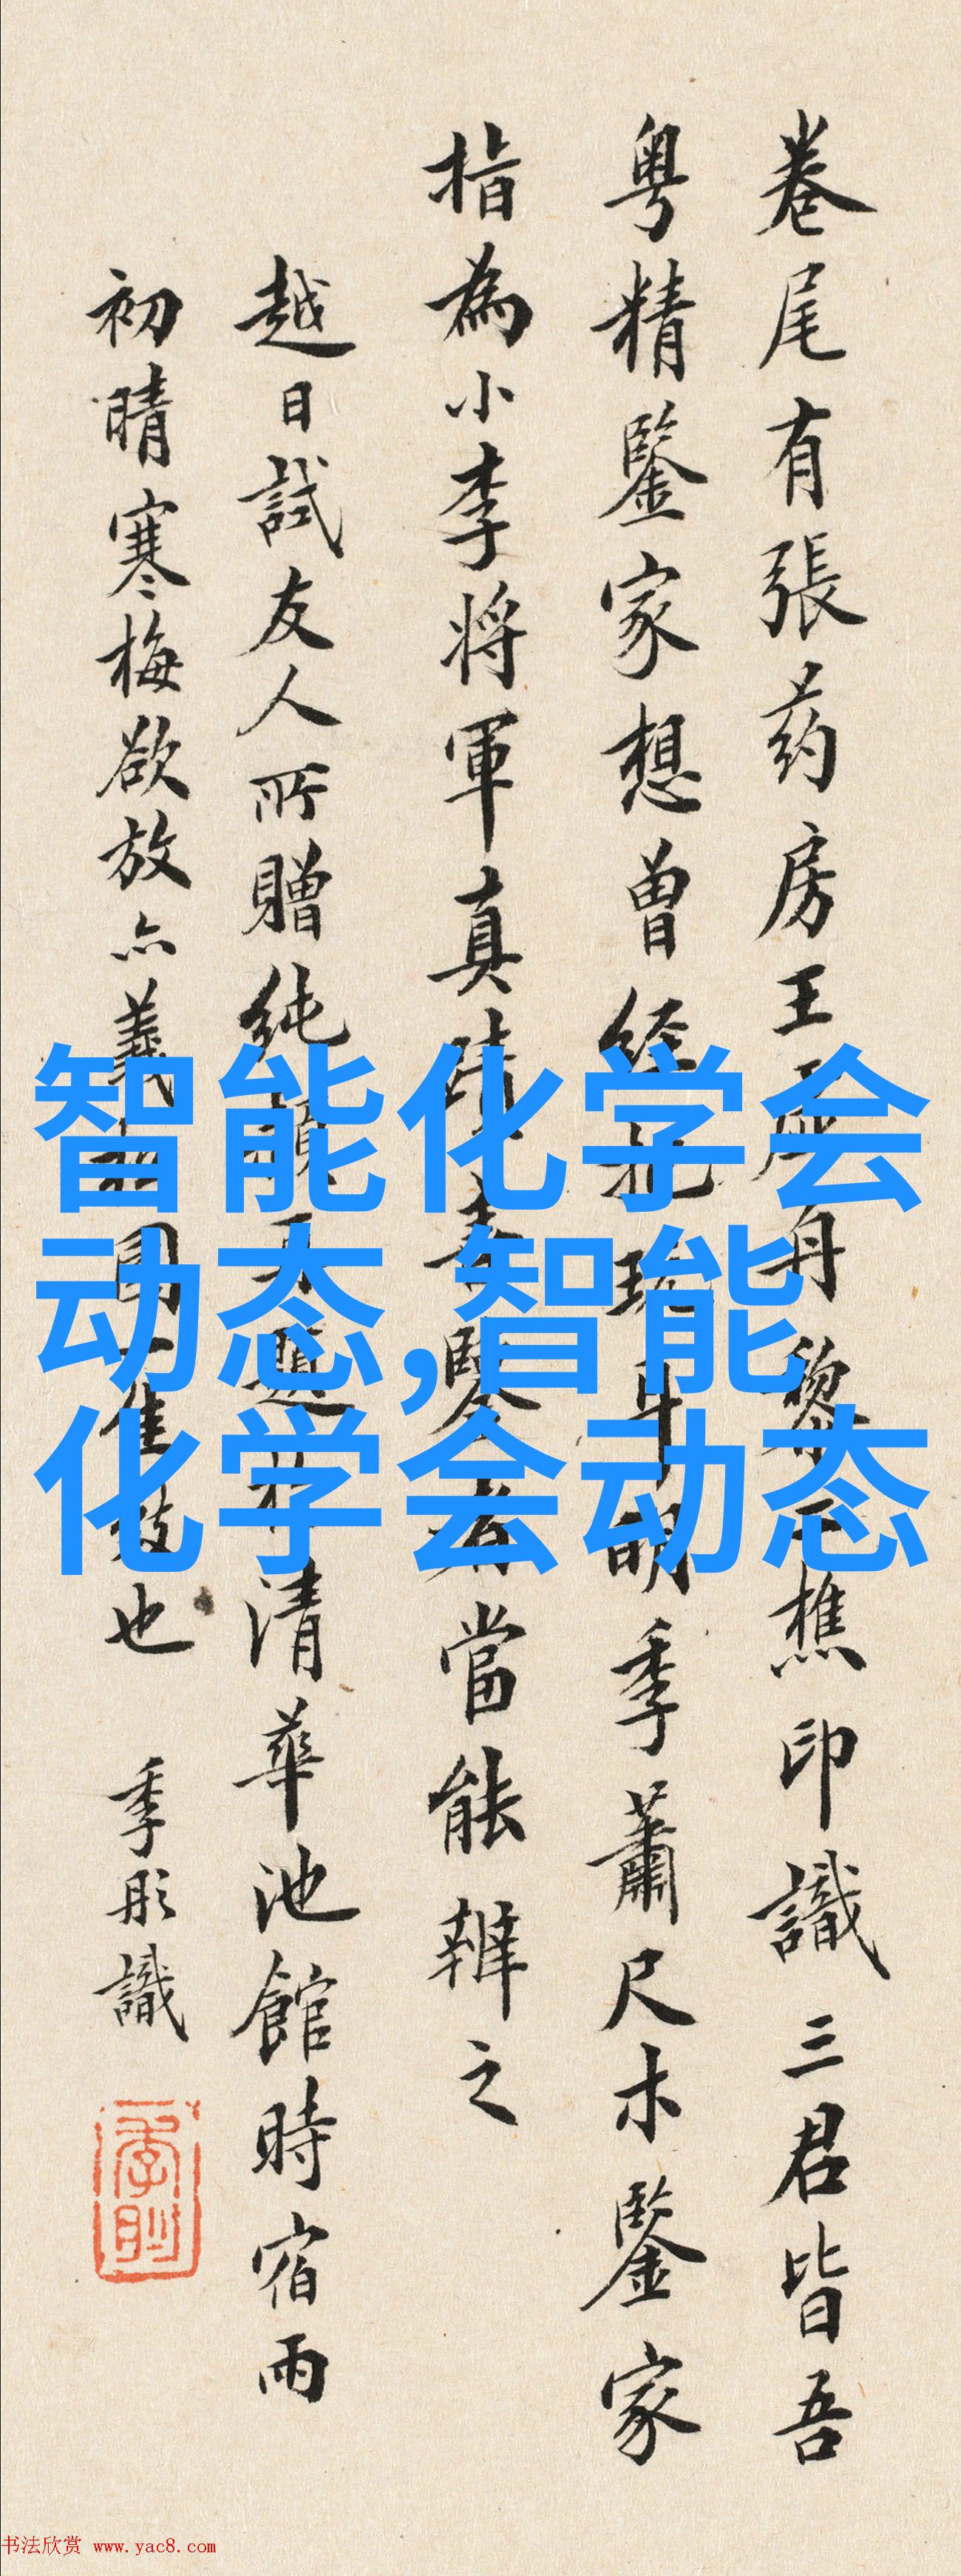 卷尾有張药房王
舟黎
樵印識三君皆吾
粤精鑒家想曾經
明季蕭尺木鑒家
指為小李将軍真
當能辨之
越日試友人所贈純
清華池館時宿雨
初晴寒梅欲放亦義
也 季彤識
智能化学会
动态,智能
化学会动态
书法欣赏 www.yac8.com